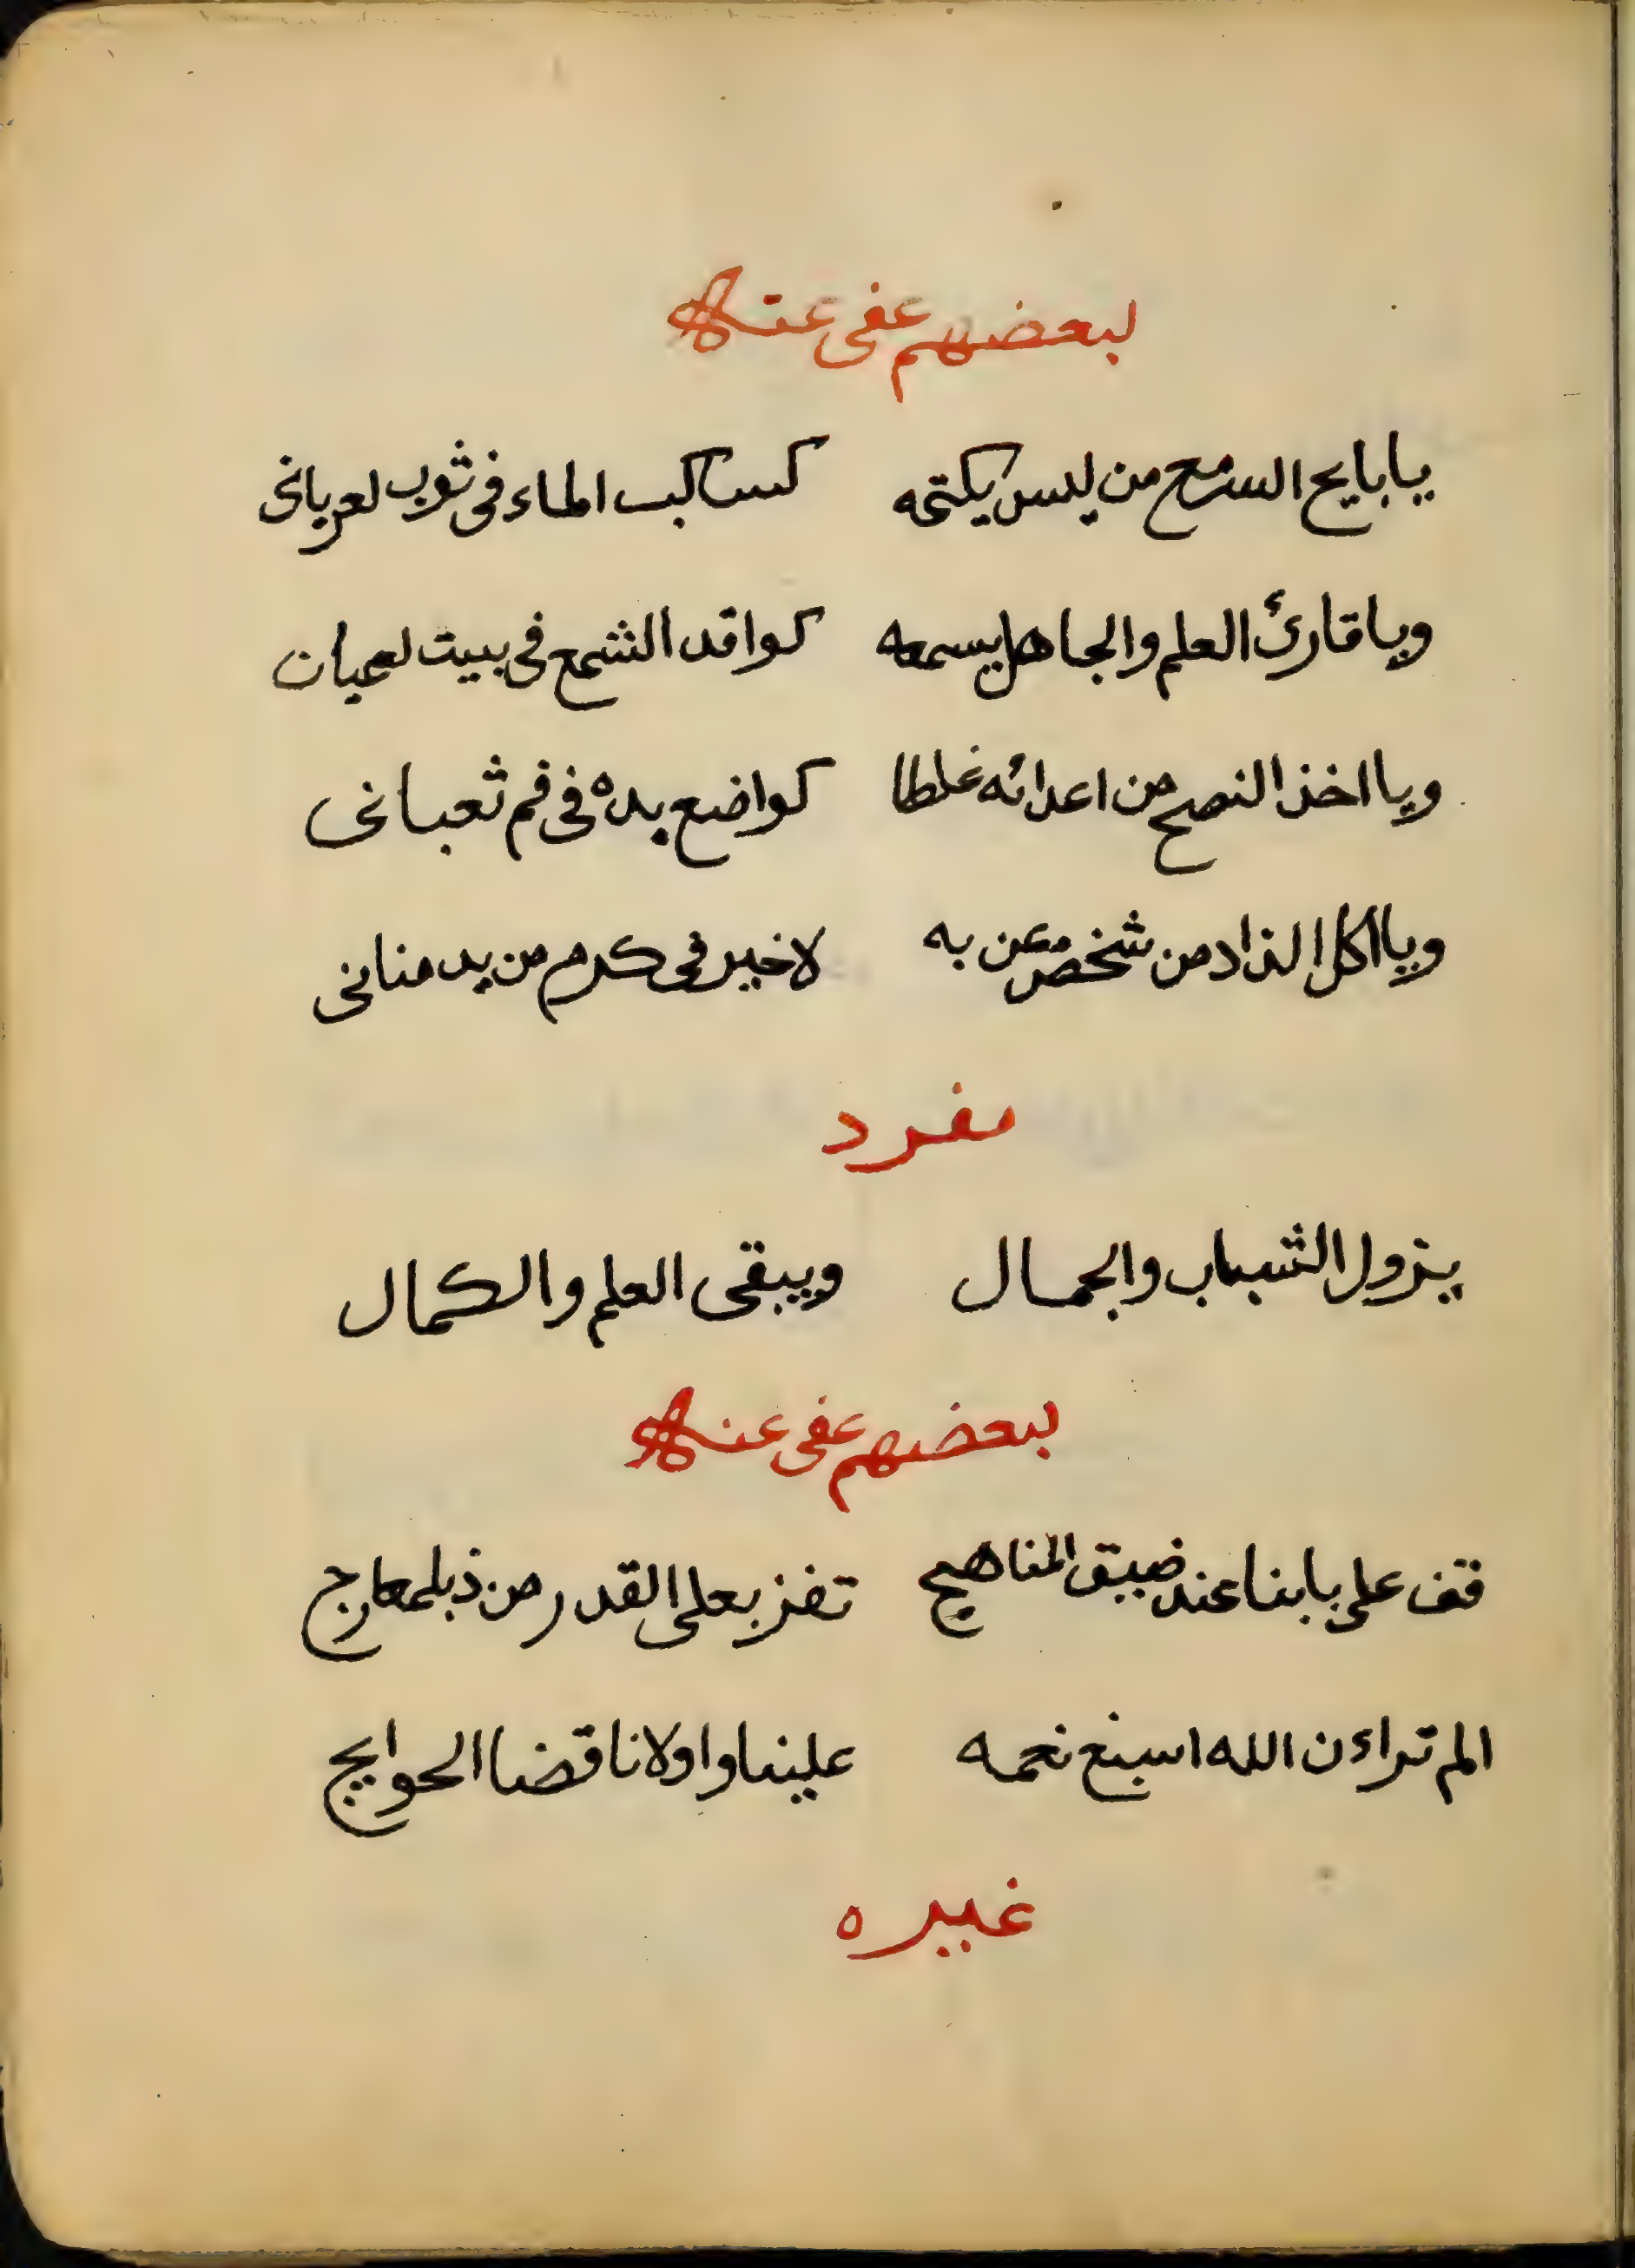 لبعضهم عفى عنه
يا بايح السر مع من ليس يكتمه كساكب الماء في ثوب لعرياني
ويا قارئ العلم والجاهل يسمعه كواقد الشمع في بيت لعميان
ويا اخذ النصح من اعدائه غلطا كواضع يده في فم ثعباني
ويا اكل الزاد من شخص من به لا خير في كرم من يد مناني
مفرد
يزول الشباب والجمال ويبقى العلم والكمال
لبعضهم عفى عنه
قف على بابنا عند ضيق المناهج تفز بعلى القدر من ذيلمعارج
الم تراءن الله اسبغ نعمه علينا واولانا قضا الحوايج
غيره